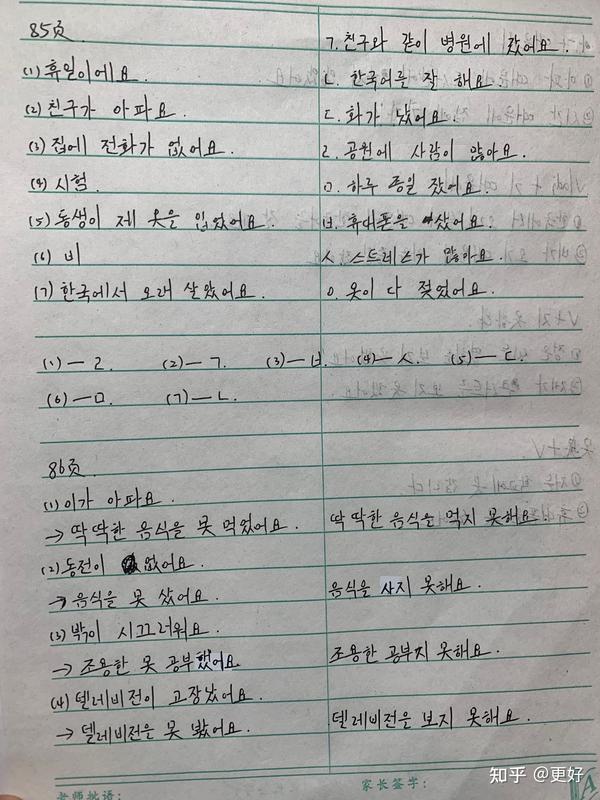 85页
(1) 휴일이에요.
(2) 친구가 아파요.
(3) 집에 전화가 없어요.
(4) 시험
(5) 동생이 제 옷을 입었어요.
(6) 비
(7) 한국에서 오래 살았어요.
ㄱ. 친구와 같이 병원에 갔어요.
ㄴ. 한국어를 잘 해요.
ㄷ. 화가 났어요.
ㄹ. 공원에 사람이 많아요.
ㅁ. 하루 종일 잤어요.
ㅂ. 휴대폰을 샀어요.
ㅅ. 스트레스가 많아요.
ㅇ. 옷이 다 젖었어요.
(1)—ㄹ. (2)—ㄱ. (3)—ㅂ. (4)—ㅅ. (5)—ㄷ.
(6)—ㅁ. (7)—ㄴ.
86页
(1) 이가 아파요.
→ 딱딱한 음식을 못 먹었어요. 딱딱한 음식을 먹지 못해요.
(2) 동전이 없어요.
→ 음식을 못 샀어요. 음식을 사지 못해요.
(3) 밖이 시끄러워요.
→ 조용한 못 공부했어요. 조용한 공부지 못해요.
(4) 델레비전이 고장났어요.
→ 델레비전을 못 봤어요. 델레비전을 보지 못해요.
老师批语: 家长签字:
知乎 @更好